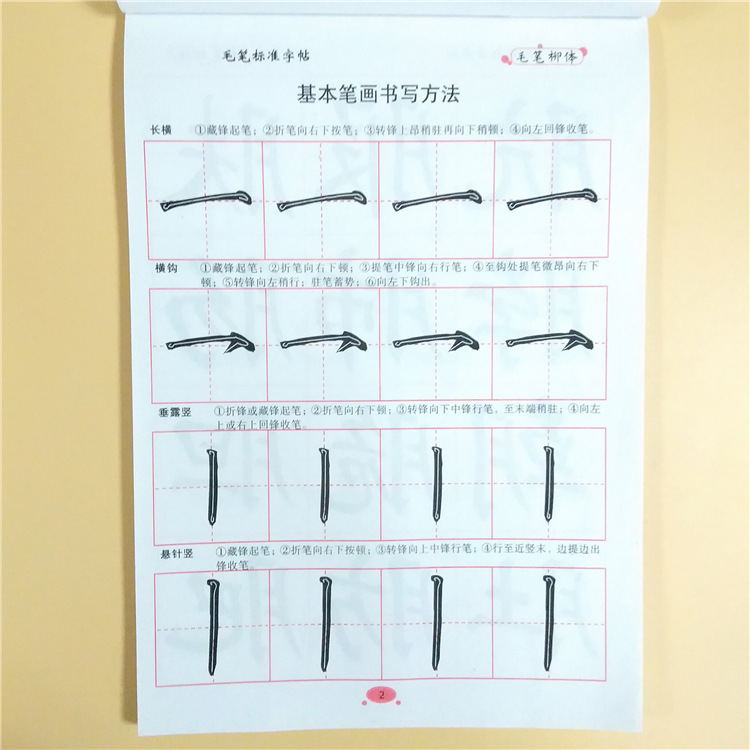 毛笔标准字帖 毛笔柳体
基本笔画书写方法
长横 ①藏锋起笔；②折笔向右下按笔；③转锋上昂稍驻再向下稍顿；④向左回锋收笔。
横钩 ①藏锋起笔；②折笔向右下顿；③提笔中锋向右行笔；④至钩处提笔微昂向右下
顿；⑤转锋向左稍行；驻笔蓄势；⑥向左下钩出。
垂露竖 ①折锋或藏锋起笔；②折笔向右下顿；③转锋向下中锋行笔、至末端稍驻；④向左
上或右上回锋收笔。
悬针竖 ①藏锋起笔；②折笔向右下按顿；③转锋向上中锋行笔；④行至近竖末，边提边出
锋收笔。
2